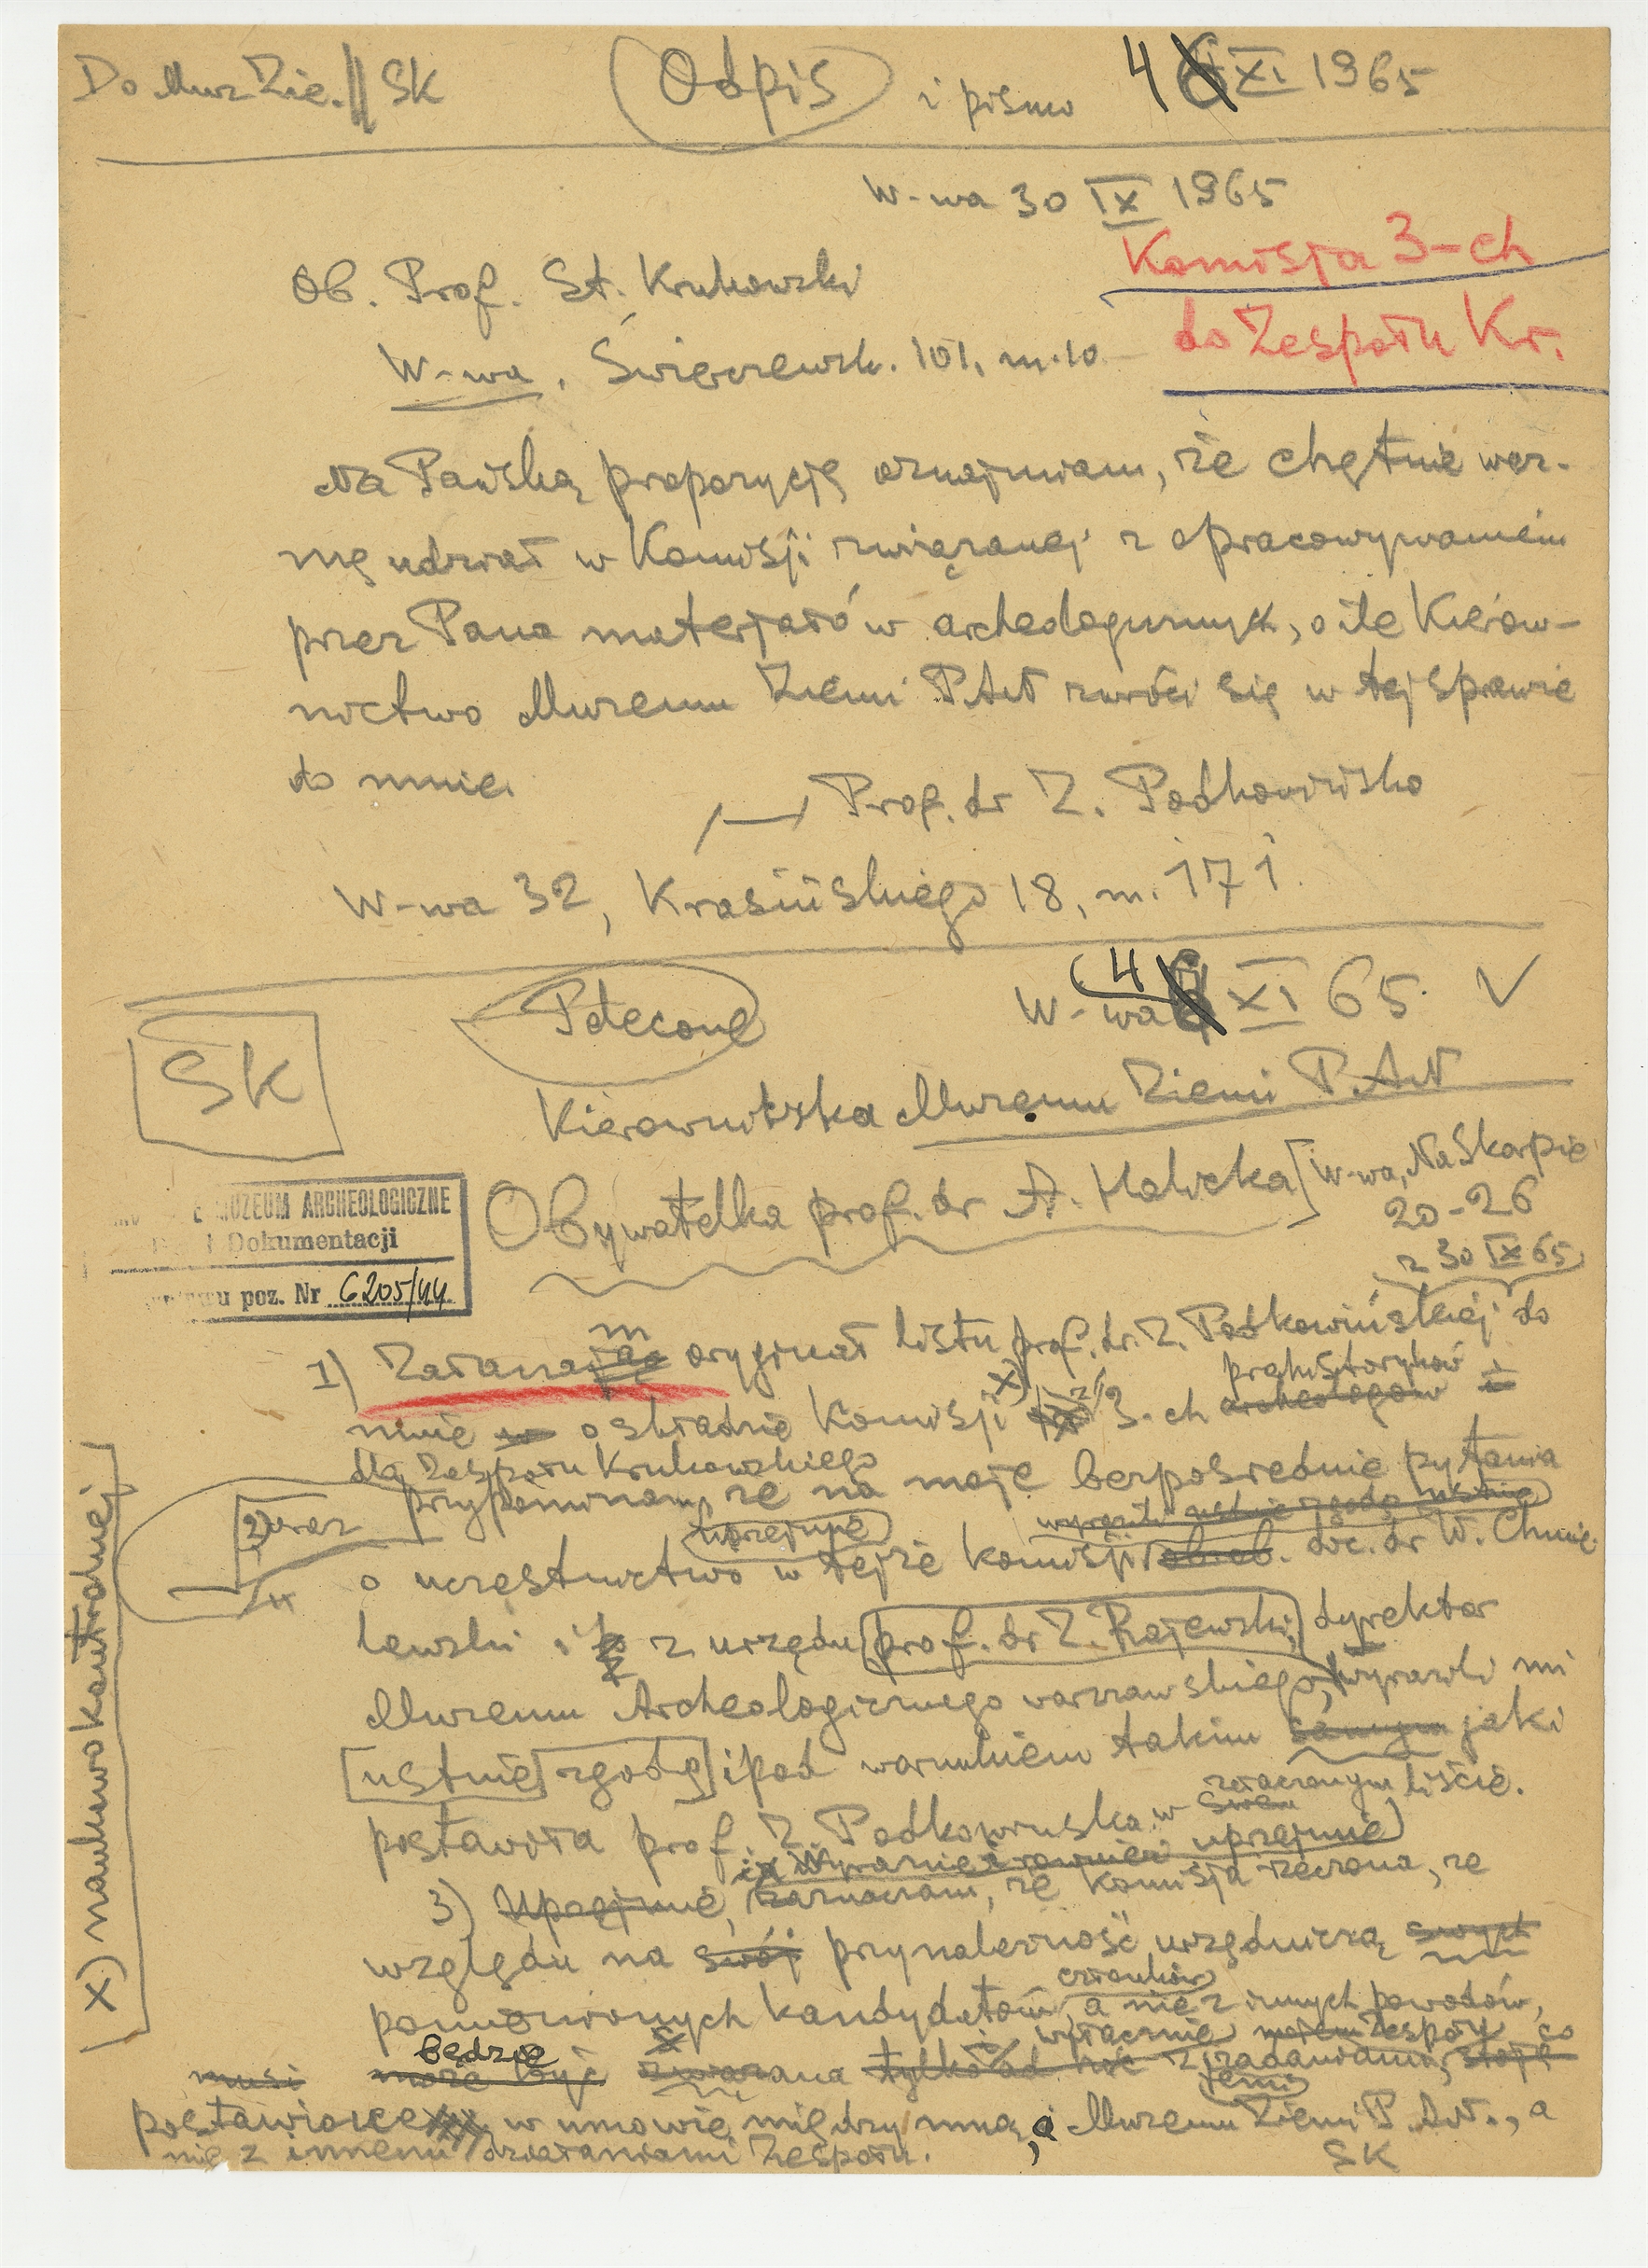 Do Muz Zie. // SK Odpis i pismo 4 XI 1965
W-wa 30 IX 1965
Komisja 3-ch
do Zespołu Kr.
Ob. Prof. St. Krukowski
W-wa, Świerczewsk. 101, m. 10
Na Pańską propozycję oznajmiam, że chętnie wez-
mę udział w Komisji związanej z opracowywaniem
przez Pana materjałów archeologicznych, o ile Kierow-
nictwo Muzeum Ziemi PAN zwróci się w tej sprawie
do mnie.
/—/ Prof. dr Z. Podkowińska
W-wa 32, Krasińskiego 18, m. 171
SK
Polecone
W-wa 4 XI 65. V
Kierowniczka Muzeum Ziemi P.AN
Obywatelka prof. dr A. Halicka [W-wa, Na Skarpie
20-26
MUZEUM ARCHEOLOGICZNE
Dokumentacji
poz. Nr 6205/44
z 30 IX 65
1) Załanaja m oryginał listu prof. dr. Z. Podkowińskiej do
prahistoryków
mnie w o składzie Komisji x) z 3-ch archeologów i
dla Zespołu Krukowskiego
2) oraz przypominam, że na moje bezpośrednie pytania
uprzejmie
o uczęstnictwo w tejże komisji doc. dr W. Chmie-
lewski i z urzędu prof. dr Z. Rajewski, dyrektor
Muzeum Archeologicznego warszawskiego, wyrazili mi
[ustnie] zgodę] i pod warunkiem takim samym jaki
załączonym liście.
postawiła prof. Z. Podkowińska w swem
uprzejmie
3) Uprzejmie, zaznaczam, że Komisja rzeczona, ze
względu na swój przynależność urzędniczą swych
członków
pomienionych kandydatów, a nie z innych powodów,
będzie wyłącznie mojem Zespołu, co
musi może być związana tylko z zadaniami, stoję
temi
postawione w umowie między mną, a Muzeum Ziemi P.AN., a
nie z innemi działaniami Zespołu.
SK
x) naukowo kontrolnej